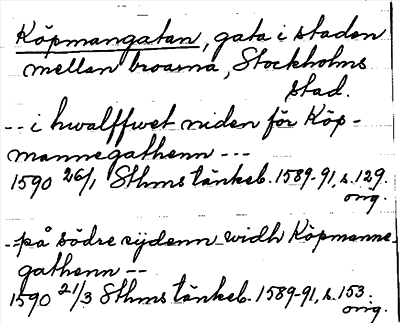 Köpmangatan, gata i staden
mellan broarna, Stockholms
stad.
-- i hwalffwet niden för Köp-
mannegathenn ---
1590 26/1 Sthms tänkeb. 1589-91, s. 129.
orig.
-- på södre sydenn widh Köpmanne-
gathenn --
1590 21/3 Sthms tänkeb. 1589-91, s. 153.
orig.